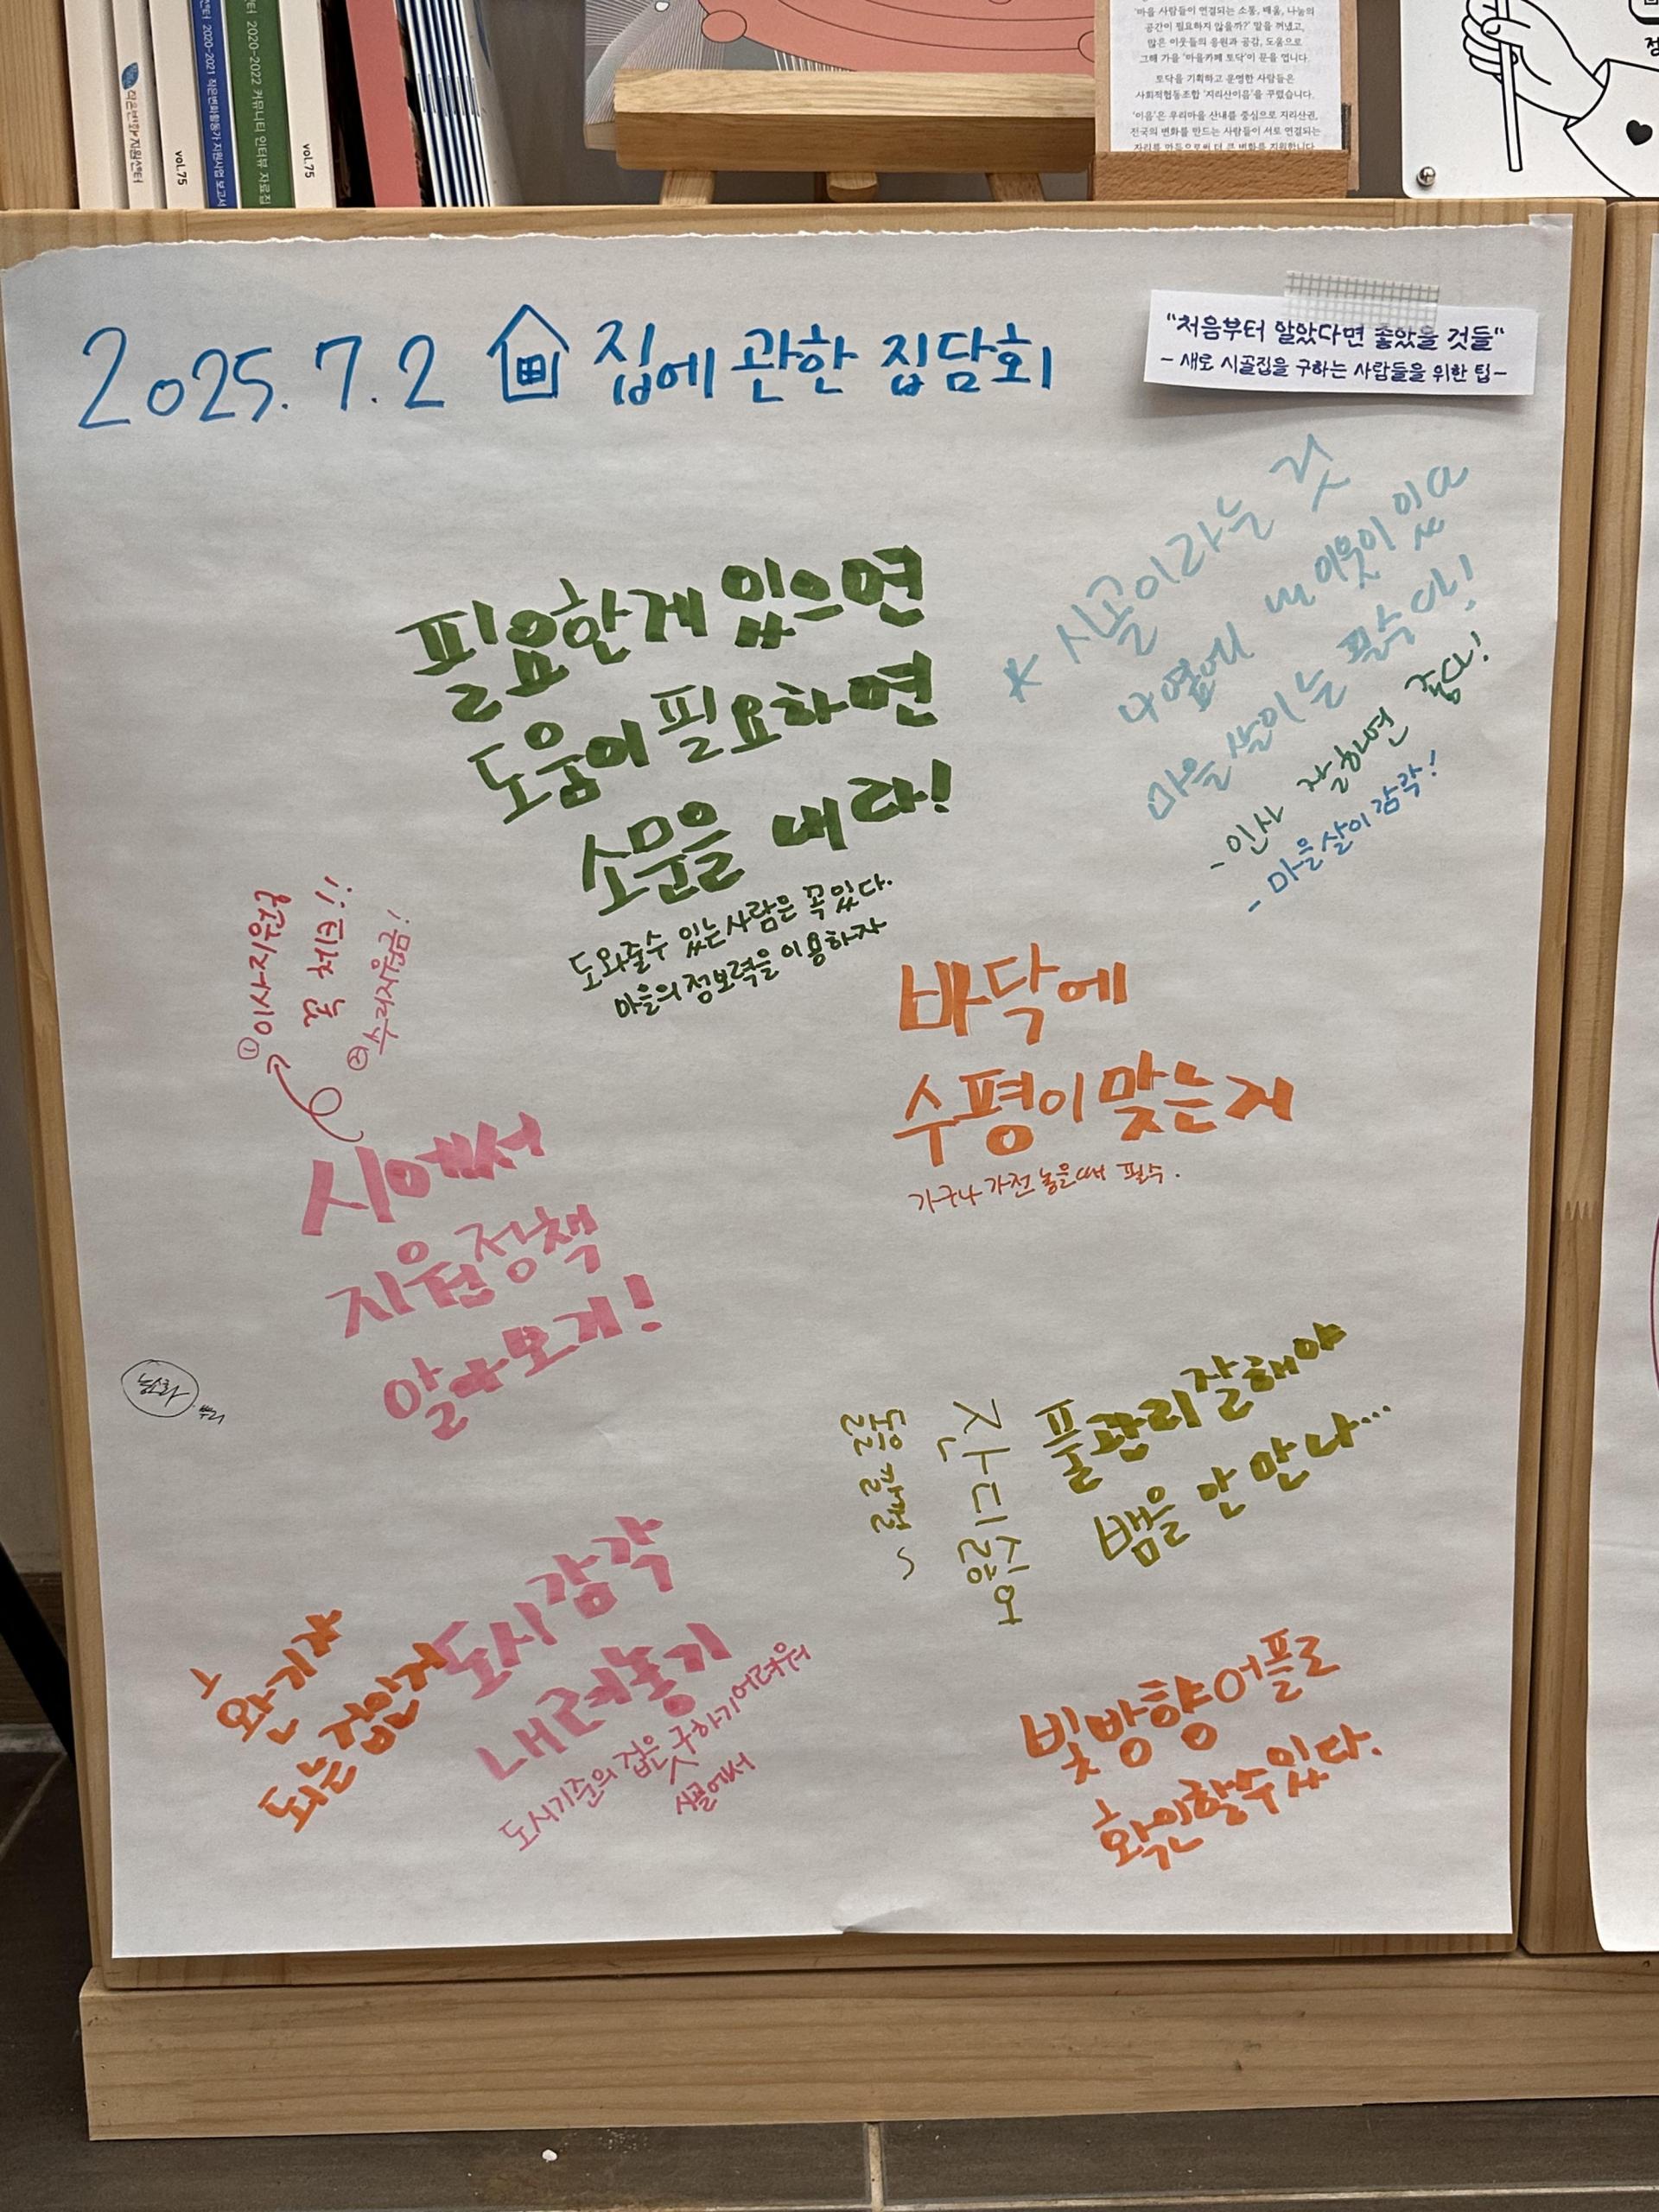 작은변화지원센터
vol.75
2020-2021 작은변화활동가 지원사업 보고서
2020-2022 커뮤니티 인터뷰 자료집
vol.75
'마을 사람들이 연결되는 소통, 배움, 나눔의
공간이 필요하지 않을까?' 말을 꺼냈고,
많은 이웃들의 응원과 공감, 도움으로
그해 가을 '마을카페 토닥'이 문을 엽니다.
토닥을 기획하고 운영한 사람들은
사회적협동조합 '지리산이음'을 꾸렸습니다.
'이음'은 우리마을 산내를 중심으로 지리산권,
전국의 변화를 만드는 사람들이 서로 연결되는
자리를 만듦으로써 더 큰 변화를 지원합니다
2025. 7. 2 집에 관한 집담회
"처음부터 알았다면 좋았을 것들"
- 새로 시골집을 구하는 사람들을 위한 팁 -
* 시골이라는 것
나 옆에 내 이웃이 있다
마을살이는 필수다!
- 인사 잘하면 좋다!
- 마을살이 감각!
필요한게 있으면
도움이 필요하면
소문을 내라!
도와줄수 있는 사람은 꼭 있다.
마을의 정보력을 이용하자
① 이사지원금
② 수리지원금!
시에서
지원정책
알아보기!
바닥에
수평이 맞는지
가구나 가전 놓을때 필수.
풀관리잘해야
뱀을 안 만나...
잔디싫어
돌을 깔래~
도시감각
내려놓기
도시기준의 집은 구하기어려워
시골에서
환기가
되는 집인지
빛방향어플로
확인할수있다.